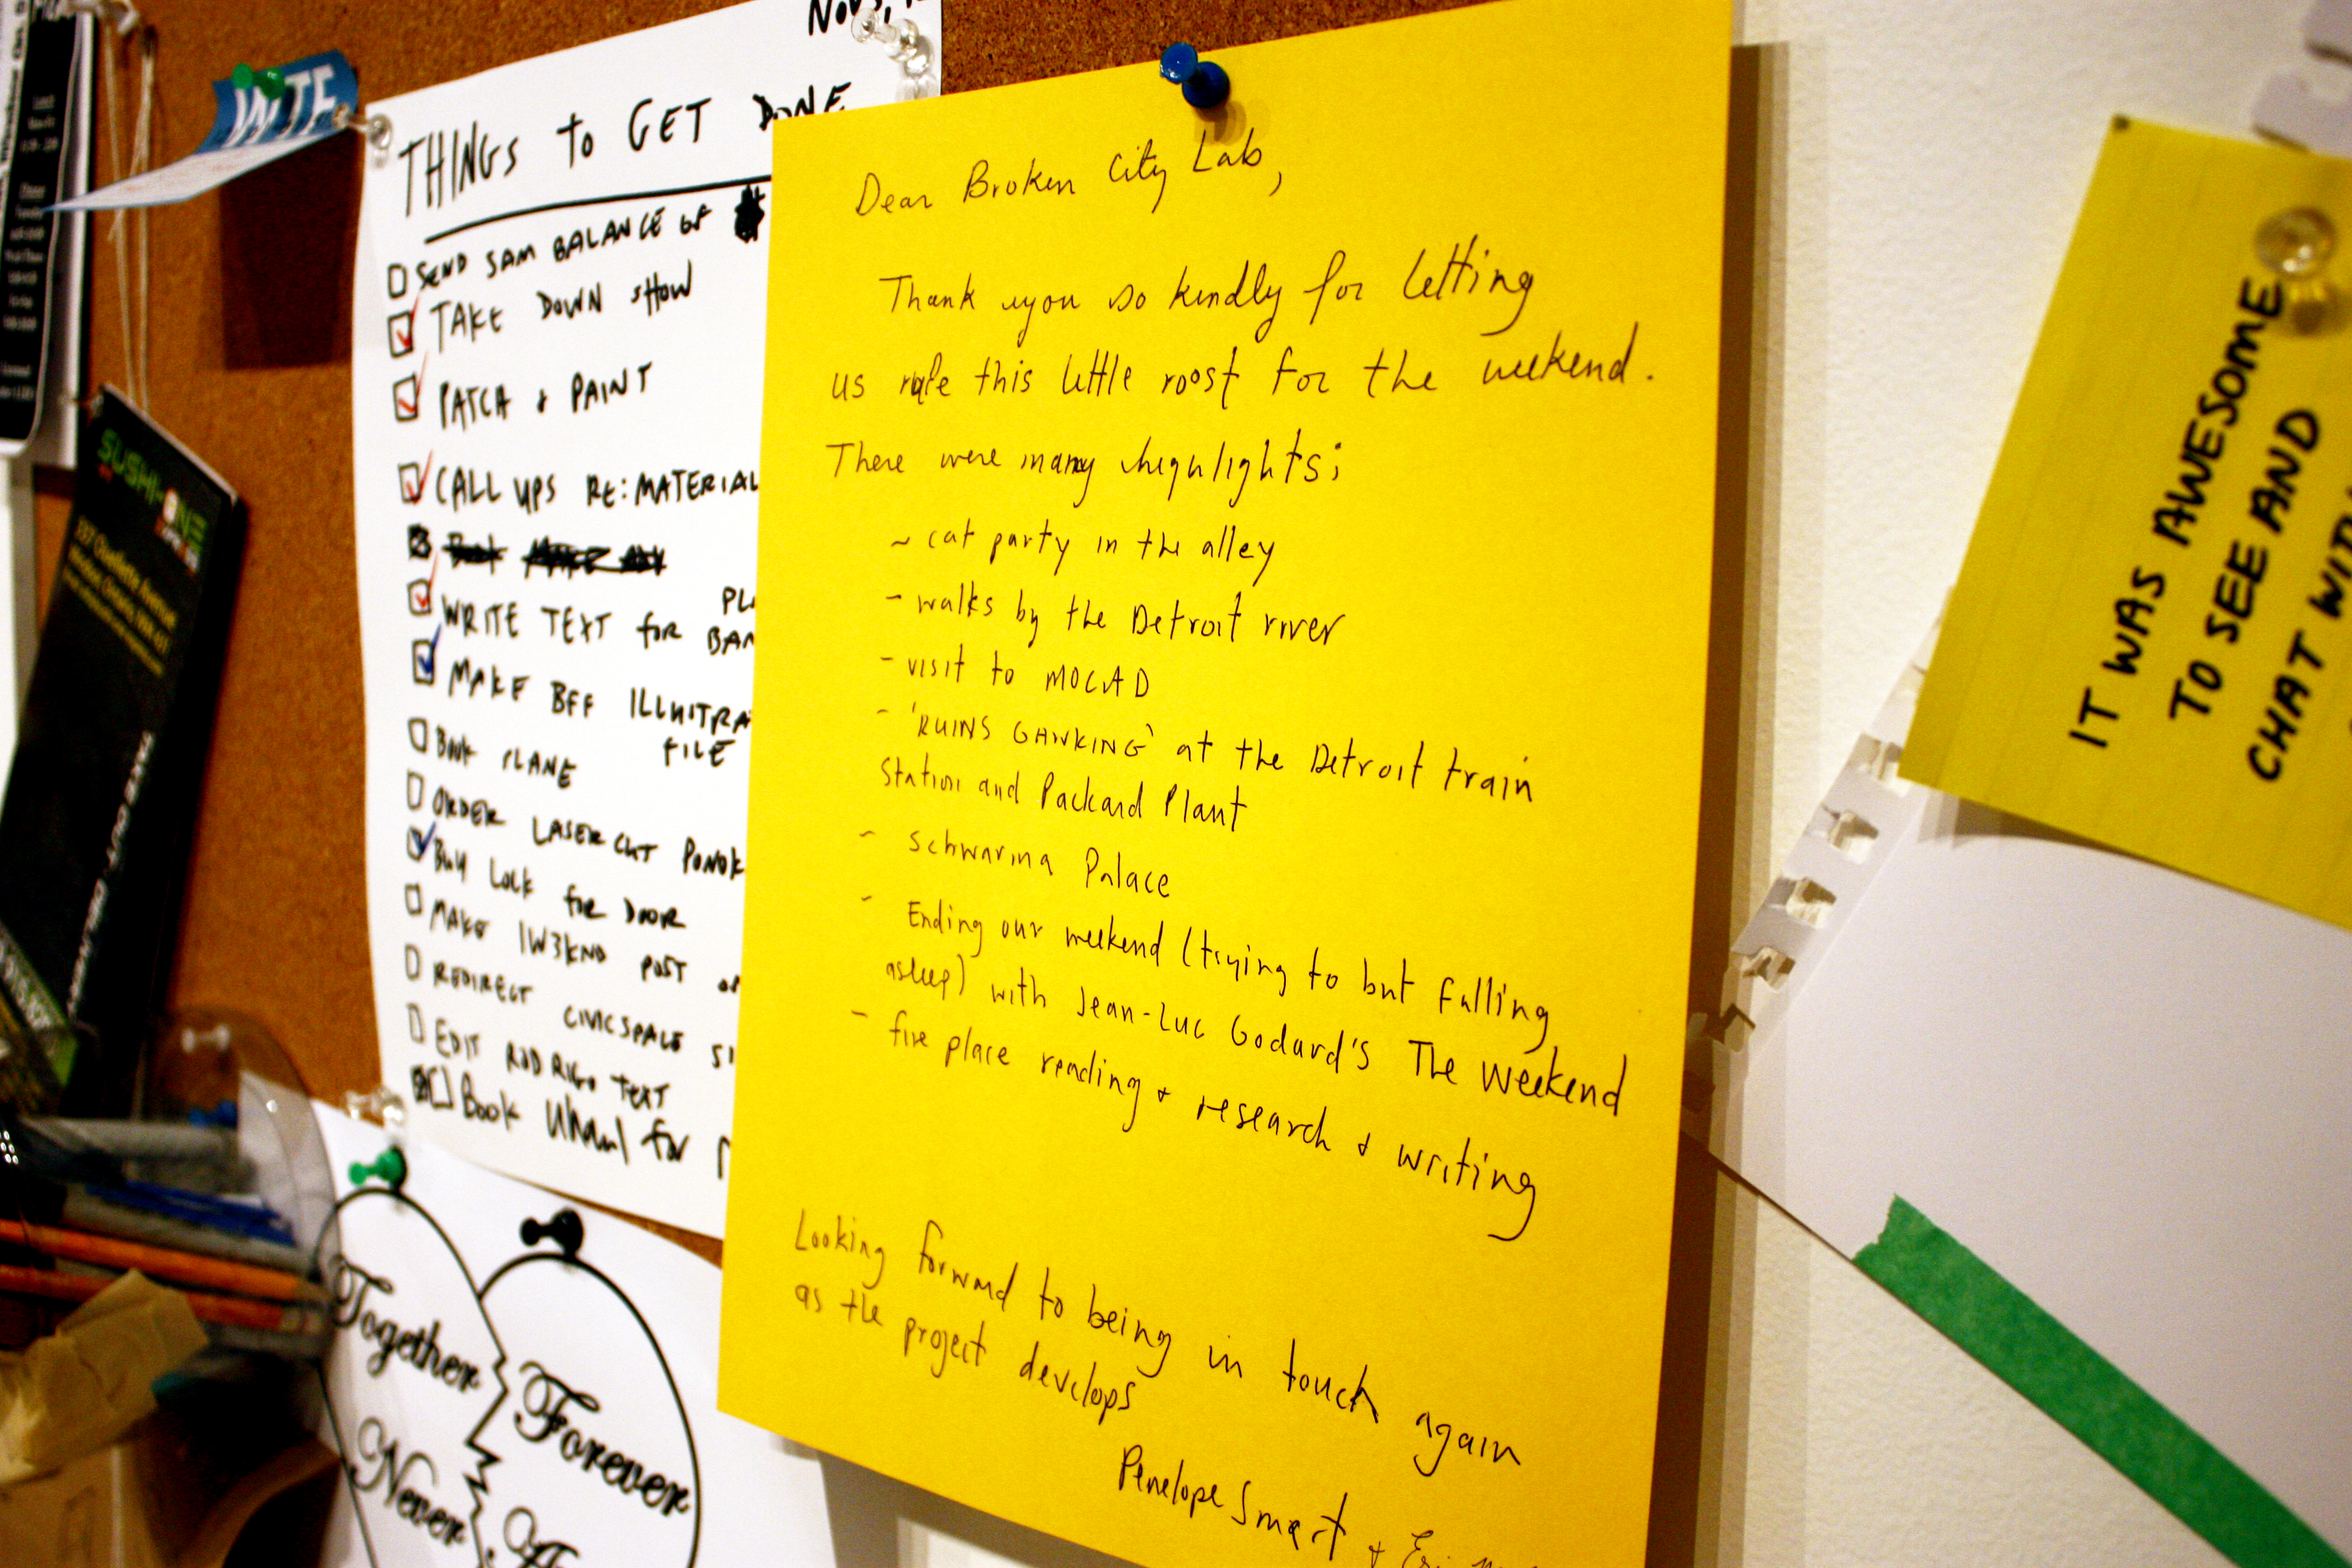 THINGS TO GET DONE
SEND SAM BALANCE OF
TAKE DOWN SHOW
PATCH & PAINT
CALL UPS RE: MATERIAL
WRITE TEXT FOR
MAKE BFF ILLUSTRA
FILE
BOOK PLANE
ORDER LASER CUT
BUY LOCK FOR DOOR
MAKE 1W3KND POST
REDIRECT CIVIC SPACE
EDIT RODRIGO TEXT
BOOK Uhaul for
Dear Broken City Lab,
Thank you so kindly for letting
us this little roost for the weekend.
There were many highlights;
~ cat party in the alley
- walks by the Detroit river
- visit to MOCAD
- 'RUINS GAWKING' at the Detroit train
Station and Packard Plant
- schwarma Palace
- Ending our weekend (trying to but falling
asleep) with Jean-Luc Godard's The Weekend
- fire place reading + research + writing
Looking forward to being in touch again
as the project develops
Penelope Smart +
IT WAS AWESOME
TO SEE AND
CHAT WITH
SUSHI-ONE
TAKE OUT
Together Forever
Never